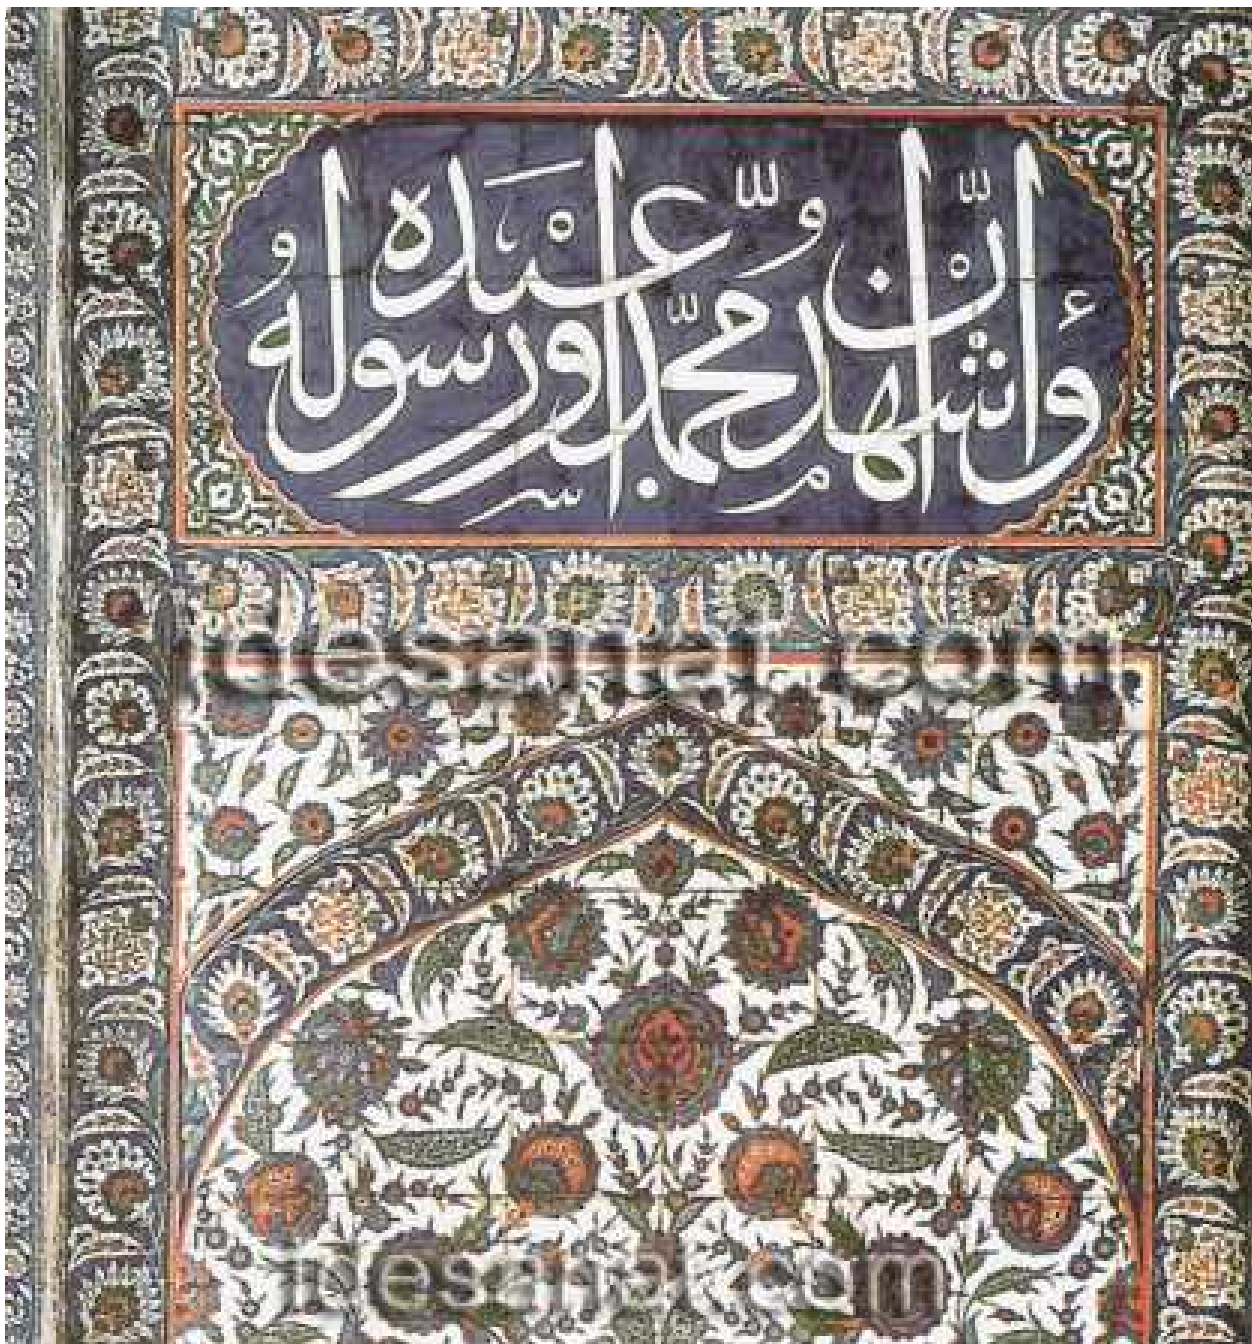 وأشهد أنّ محمّدا عبده ورسوله
idesanat.com
idesanat.com